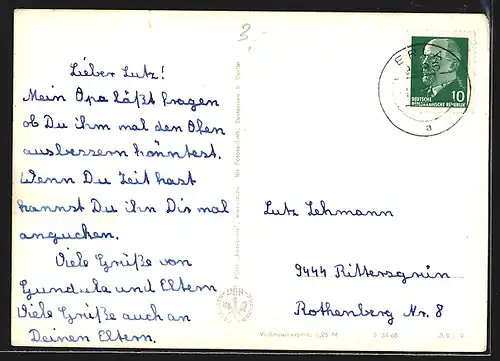 3.-
Lieber Lutz!
Mein Opa läßt fragen
ob Du ihm mal den Ofen
ausbessern könntest.
Wenn Du Zeit hast
kannst Du ihn Dir mal
angucken.
Viele Grüße von
Gundula und Eltern
Viele Grüße auch an
Deinen Eltern.
10
DEUTSCHE
DEMOKRATISCHE REPUBLIK
a
Lutz Lehmann
9444 Rittersgrün
Rothenberg Nr. 8